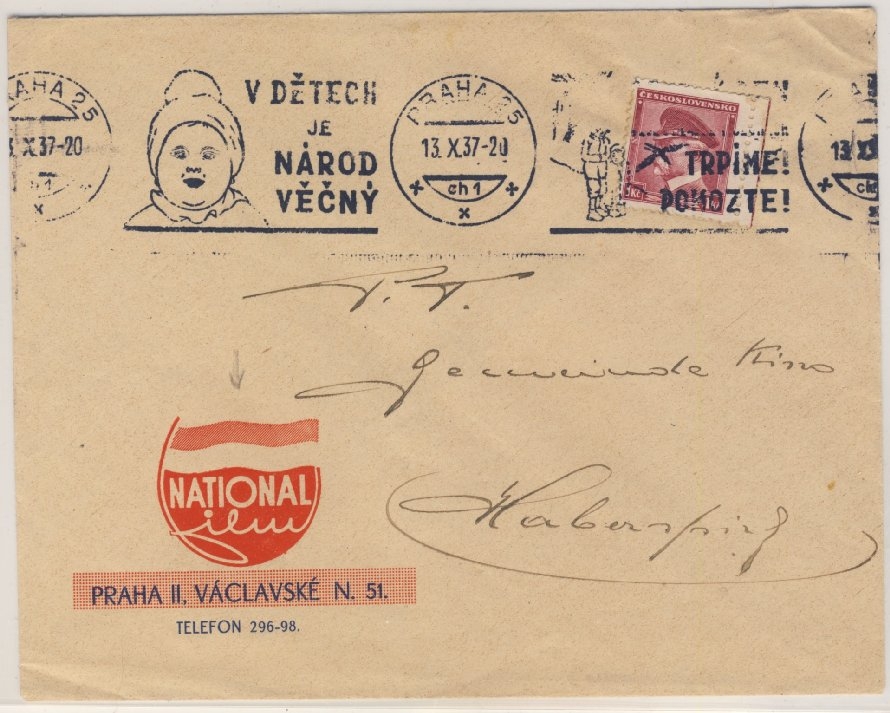 PRAHA 25
13. X.37-20
ch 1
V DĚTECH
JE
NÁROD
VĚČNÝ
PRAHA 25
13. X.37-20
ch 1
ČESKOSLOVENSKO
TRPÍME!
POMOZTE!
P. T.
Gemeinde Kino
Haberspirk
NATIONAL
film
PRAHA II, VÁCLAVSKÉ N. 51.
TELEFON 296-98.